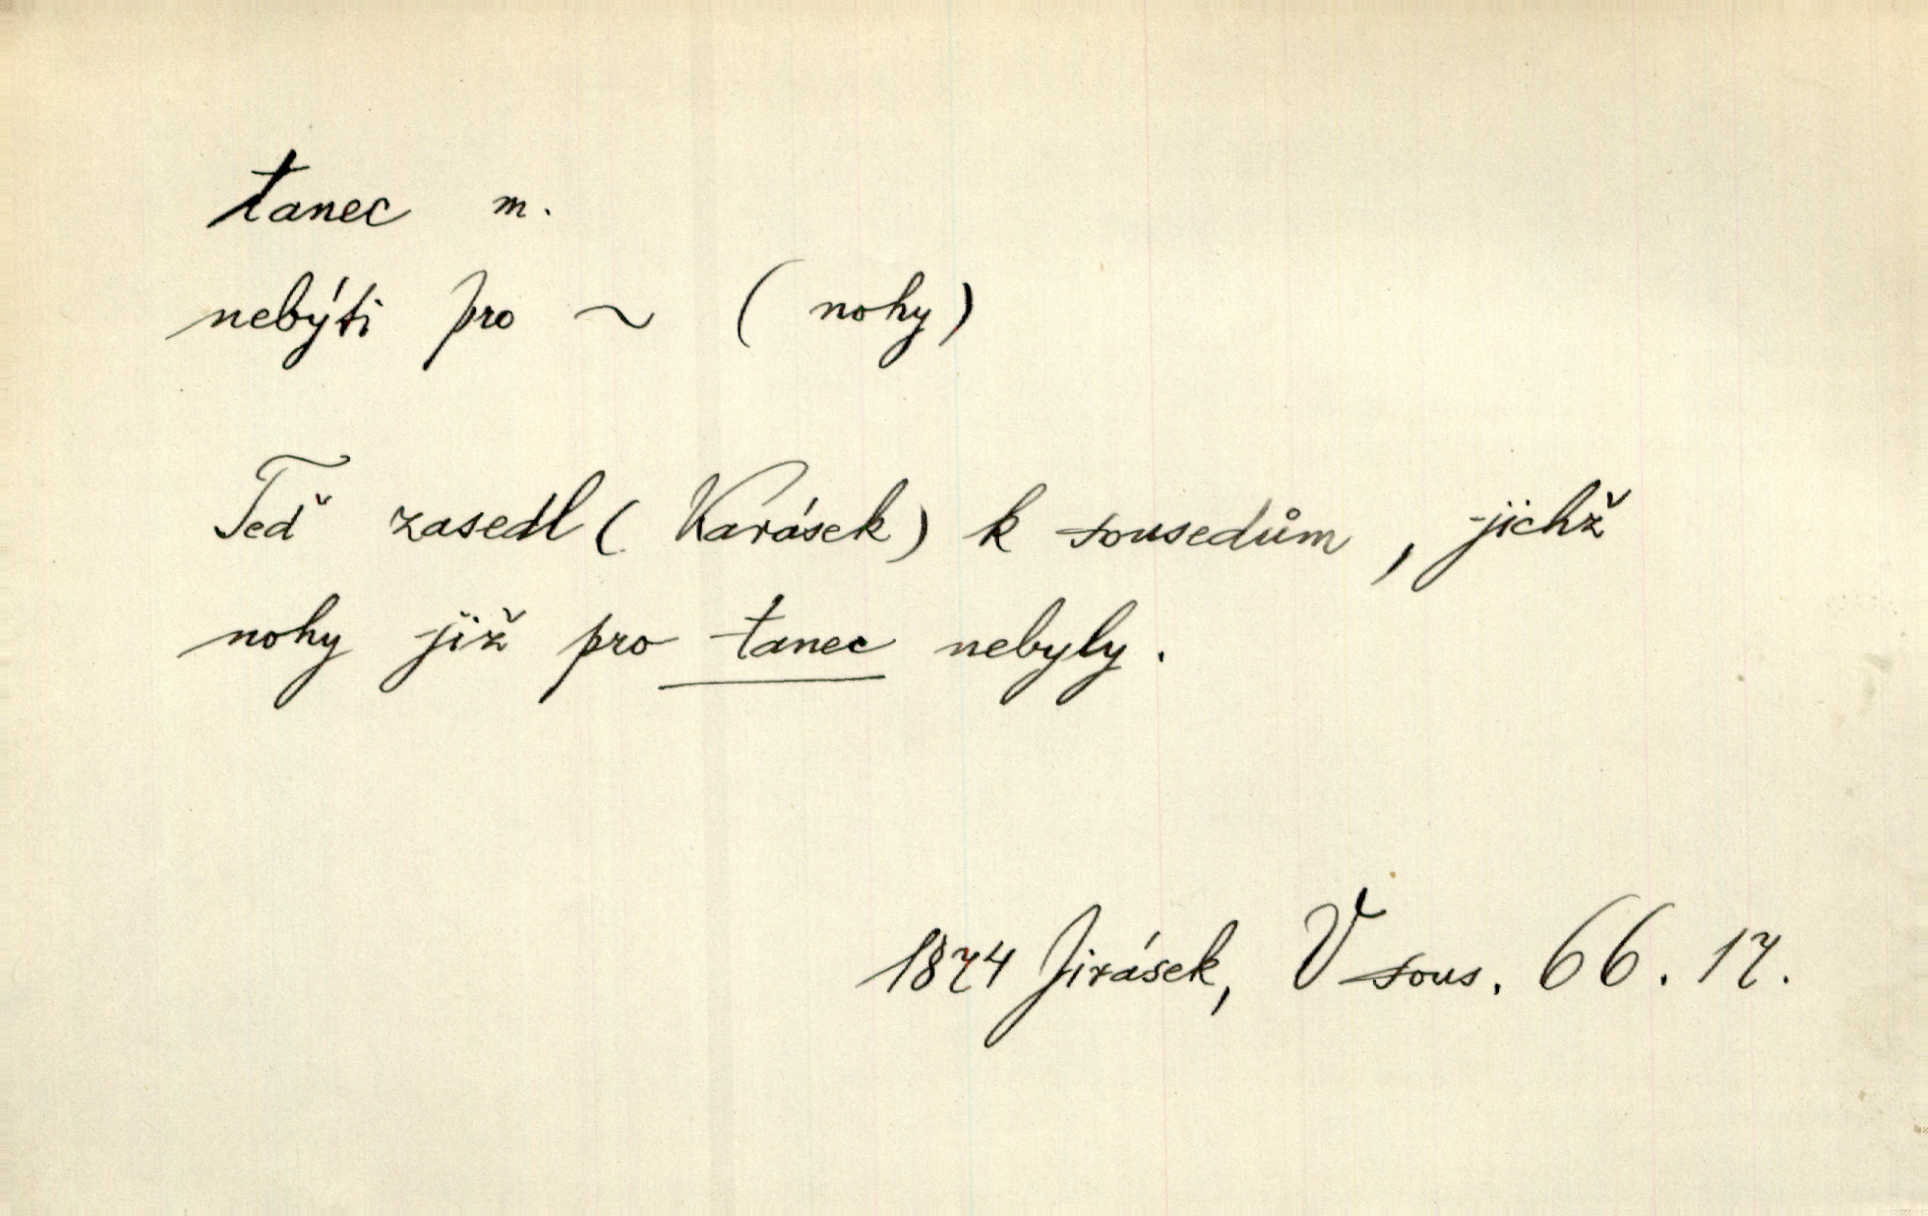 tanec m.
nebýti pro ~ (nohy)
Teď zasedl (Karásek) k sousedům, jichž
nohy již pro tanec nebyly.
1874 Jirásek, V sous. 66. 17.